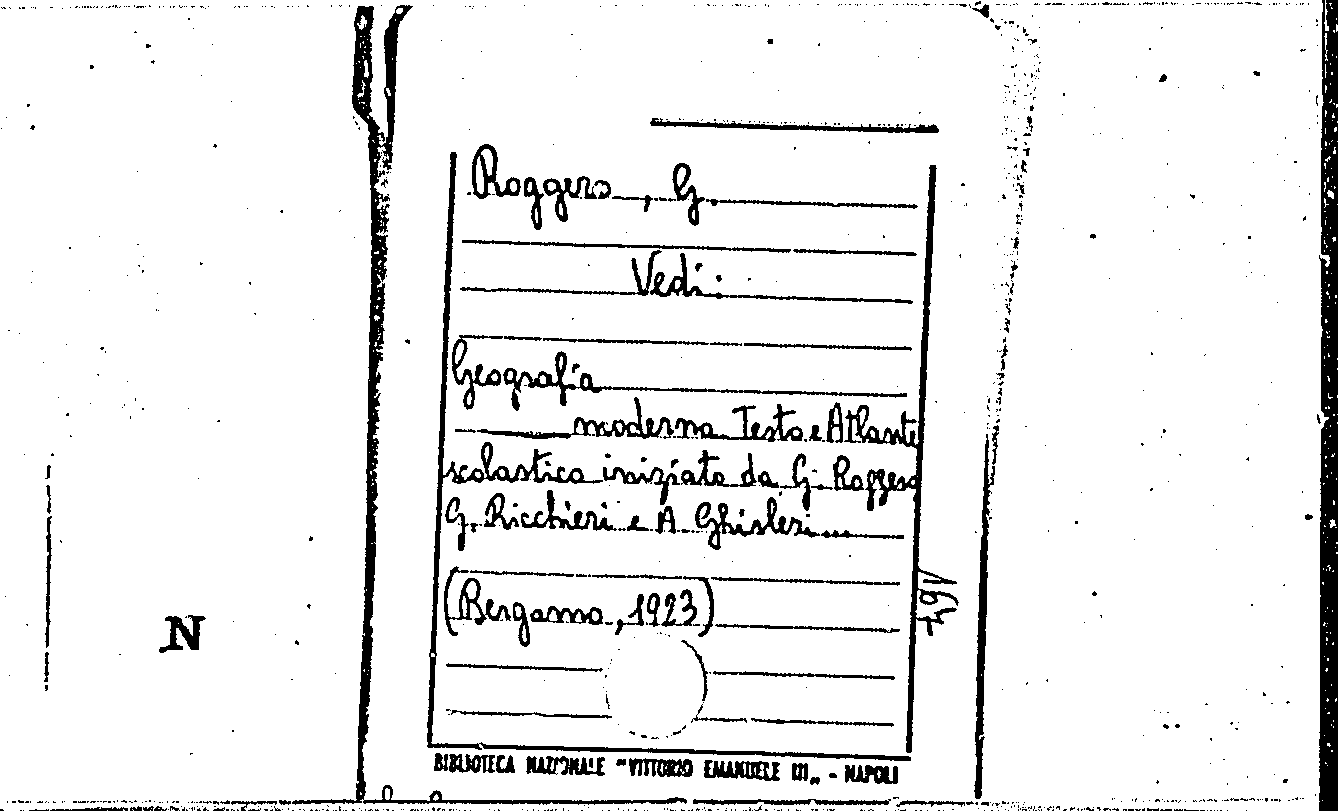 Roggero, G.
Vedi:
Geografia
moderna Testo e Atlante
scolastico iniziato da G. Roggero
G. Ricchieri e A Ghisleri...
(Bergamo, 1923)
BIBLIOTECA NAZIONALE "VITTORIO EMANUELE III„ - NAPOLI
N